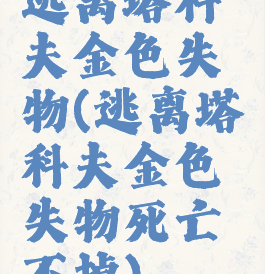 逃离塔科
夫金色失
物(逃离塔
科夫金色
失物死亡
不掉)